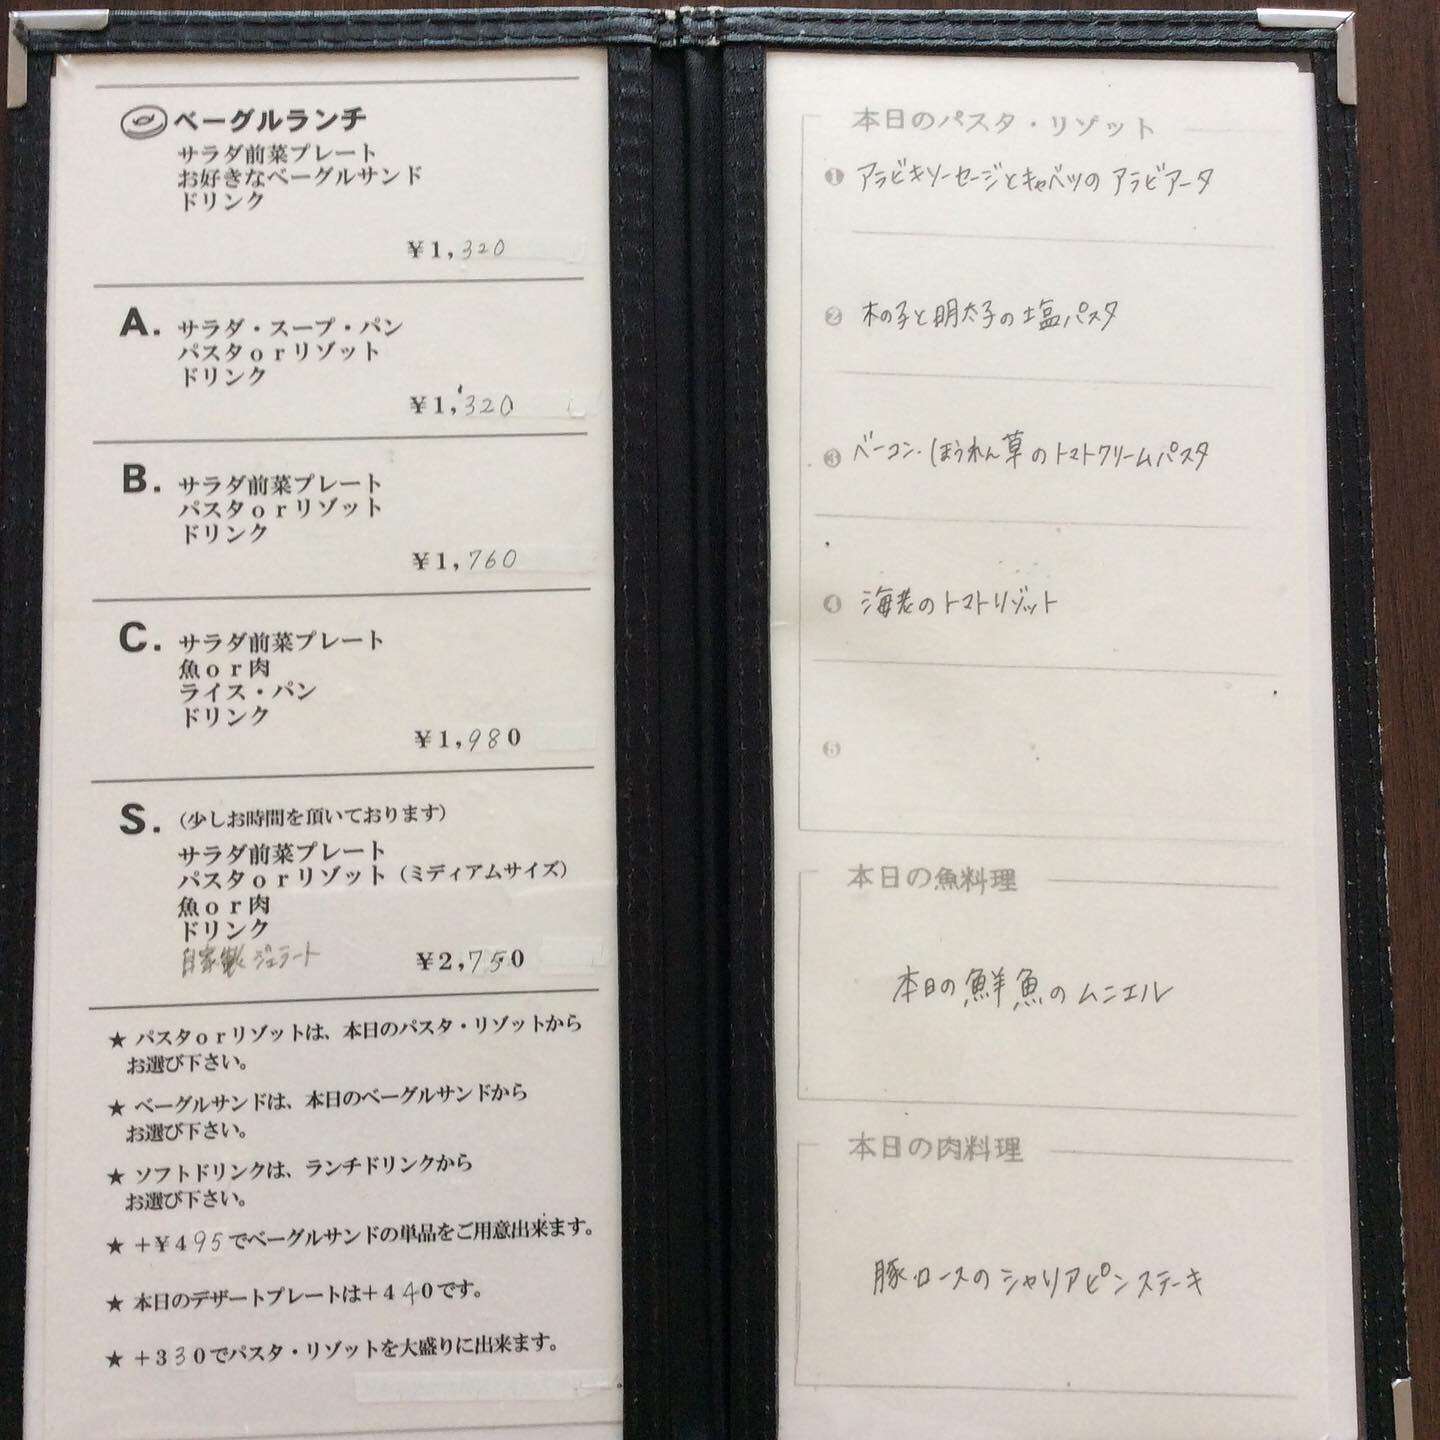 ベーグルランチ
サラダ前菜プレート
お好きなベーグルサンド
ドリンク
¥1,320
A. サラダ・スープ・パン
パスタorリゾット
ドリンク
¥1,320
B. サラダ前菜プレート
パスタorリゾット
ドリンク
¥1,760
C. サラダ前菜プレート
魚or肉
ライス・パン
ドリンク
¥1,980
S. (少しお時間を頂いております)
サラダ前菜プレート
パスタorリゾット(ミディアムサイズ)
魚or肉
ドリンク
自家製ジェラート ¥2,750
★ パスタorリゾットは、本日のパスタ・リゾットから
お選び下さい。
★ ベーグルサンドは、本日のベーグルサンドから
お選び下さい。
★ ソフトドリンクは、ランチドリンクから
お選び下さい。
★ +¥495でベーグルサンドの単品をご用意出来ます。
★ 本日のデザートプレートは+440です。
★ +330でパスタ・リゾットを大盛りに出来ます。
本日のパスタ・リゾット
1 アラビキソーセージとキャベツのアラビアータ
2 木の子と明太子の塩パスタ
3 ベーコン・ほうれん草のトマトクリームパスタ
4 海老のトマトリゾット
5
本日の魚料理
本日の鮮魚のムニエル
本日の肉料理
豚ロースのシャリアピンステーキ